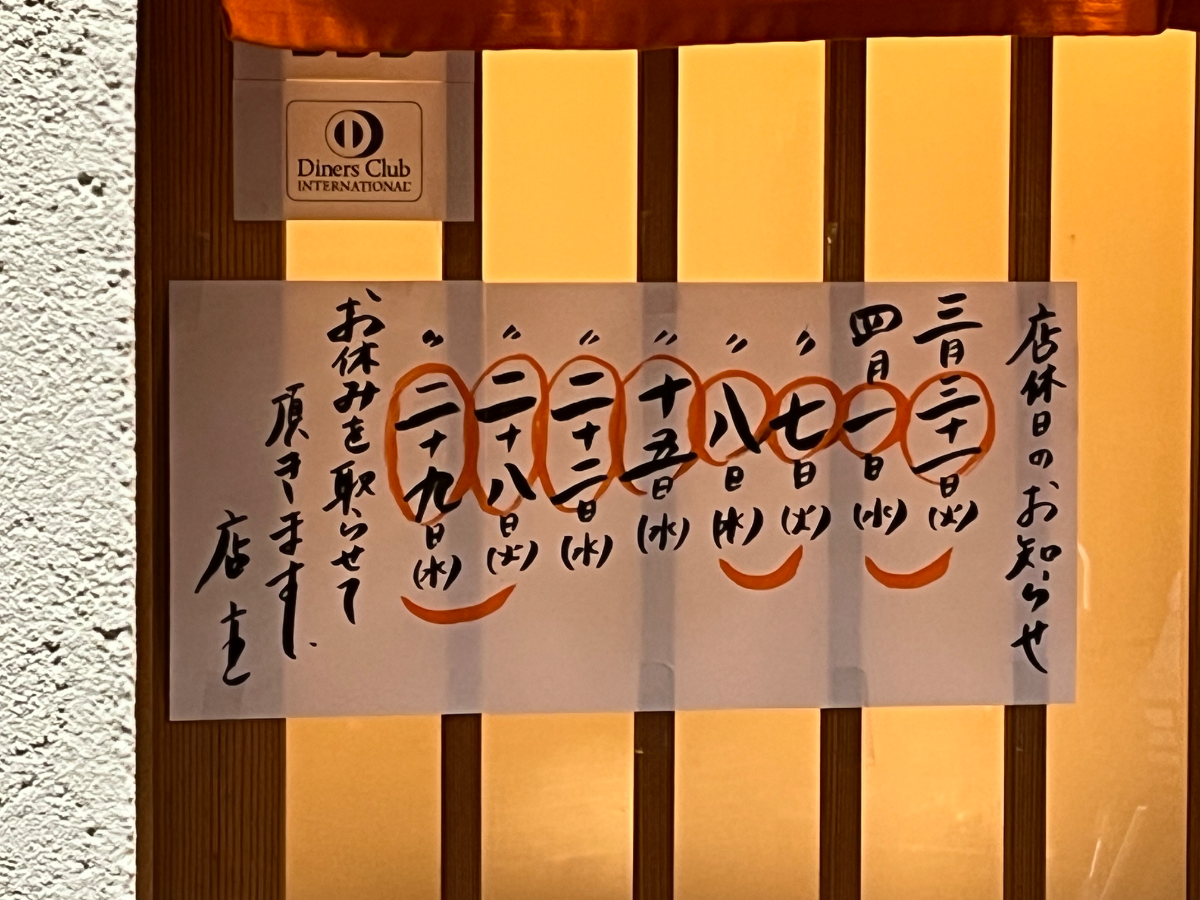 Diners Club
INTERNATIONAL
店休日のお知らせ
三月三十一日(火)
四月一日(水)
〃七日(火)
〃八日(水)
〃十五日(水)
〃二十二日(水)
〃二十八日(火)
〃二十九日(水)
お休みを取らせて
頂きます、
店主